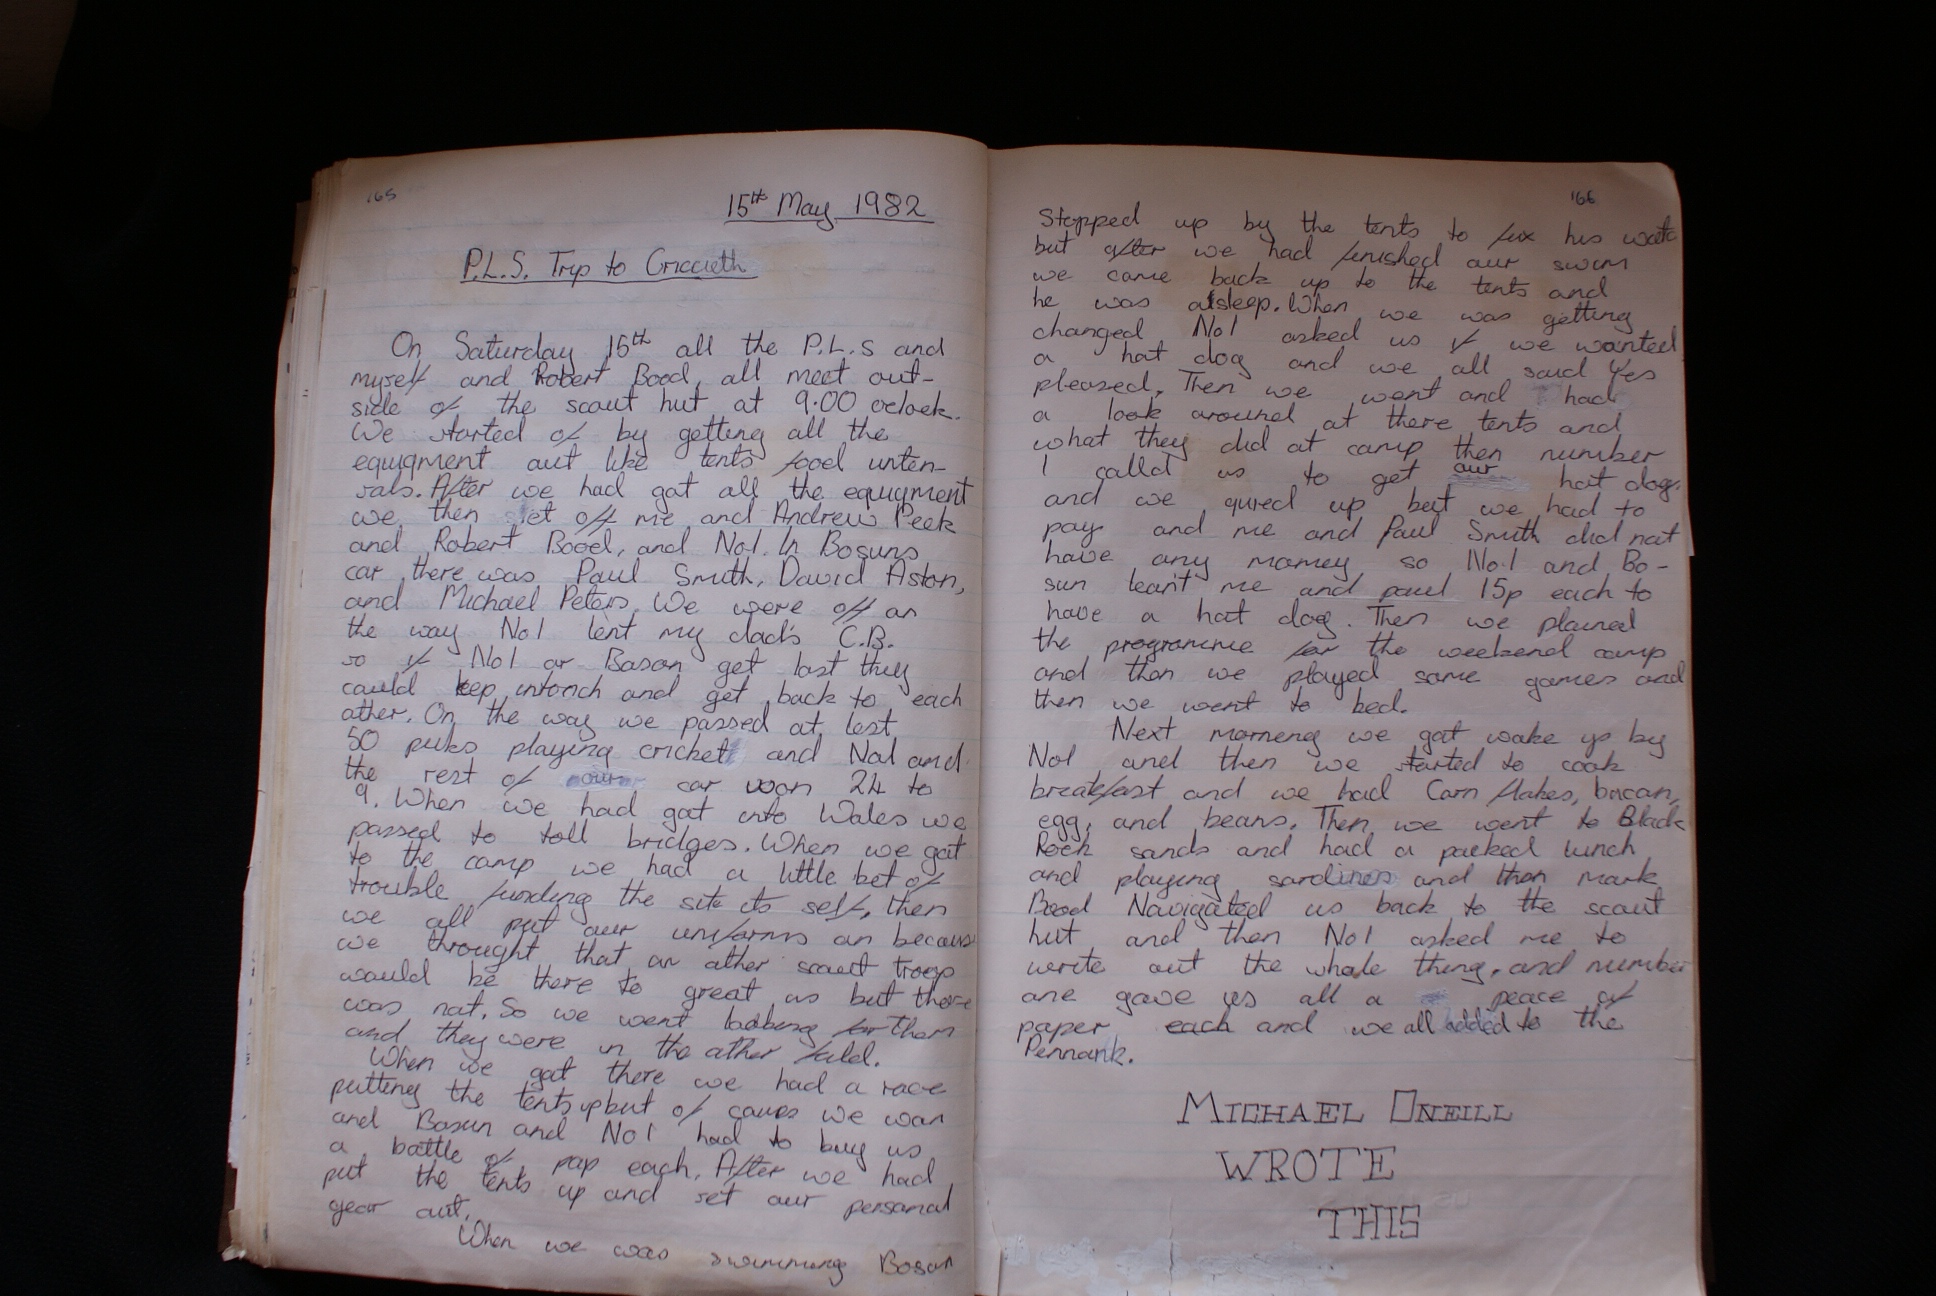 165
15th May 1982
P.L.S. Trip to Criccieth
On Saturday 15th all the P.L.S and
myself and Robert Bood, all meet out-
side of the scout hut at 9.00 oclock.
We started of by getting all the
equiqment out like tents food unten-
sals. After we had got all the equiqment
we then set off me and Andrew Peek
and Robert Bood, and No1. In Bosuns
car there was Paul Smith, David Aston,
and Michael Peters. We were off on
the way No1 lent my dad's C.B.
so if No1 or Boson get lost they
could keep intonch and get back to each
other. On the way we passed at lest
50 pubs playing cricket and No1 and
the rest of our car woon 24 to
9. When we had got into Wales we
passed to toll bridges. When we got
to the camp we had a little bet of
trouble funding the site its self, then
we all put our uniforms on becaus
we throught that an other scout troop
would be there to great us but there
was not. So we went looking for them
and they were in the other faild.
When we got there we had a race
putting the tents up but of caues we won
and Bosun and No1 had to buy us
a bottle of pop each. After we had
put the tents up and set our personal
gear out.
When we was swimming Bosan
166
Stopped up by the tents to fix his watch
but after we had finished our swim
we came back up to the tents and
he was alsleep. When we was getting
changed No1 asked us if we wanted
a hot dog and we all said Yes
pleased. Then we went and had
a look around at there tents and
what they did at camp then number
1 calld us to get our hot dogs.
and we qured up but we had to
pay and me and Paul Smith did not
have any momey so No.1 and Bo-
sun leant me and paul 15p each to
have a hot dog. Then we planed
the programme for the weekend camp
and then we played some games and
then we went to bed.
Next morneng we got wake up by
No1 and then we started to cook
breakfast and we had Corn flakes, bacan,
egg, and beans. Then we went to Black
Rock sands and had a packed lunch
and playing sardines and then mark
Bood Navigated us back to the scout
hut and then No1 asked me to
write out the whole thing, and number
one gave us all a peace of
paper each and we all added to the
Pennank.
MICHAEL ONEILL
WROTE
THIS